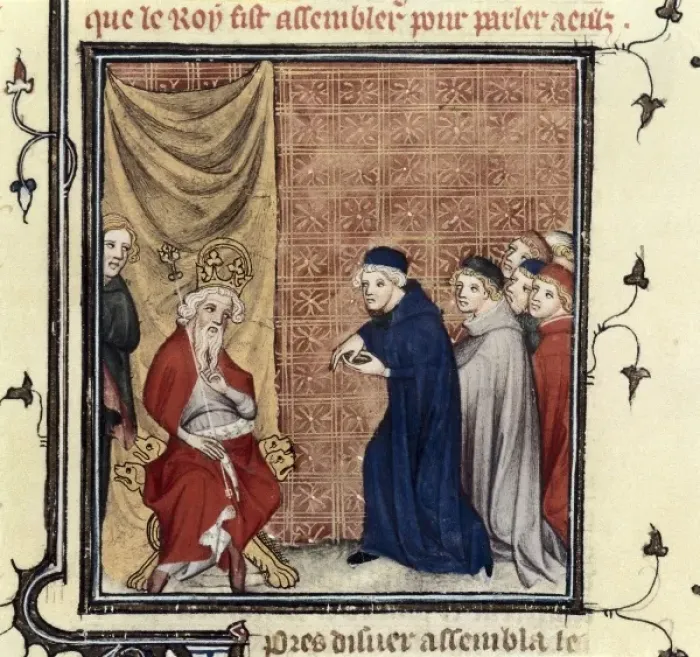 que le Roy fist assembler pour parler a eulz .
pres disner assembla le